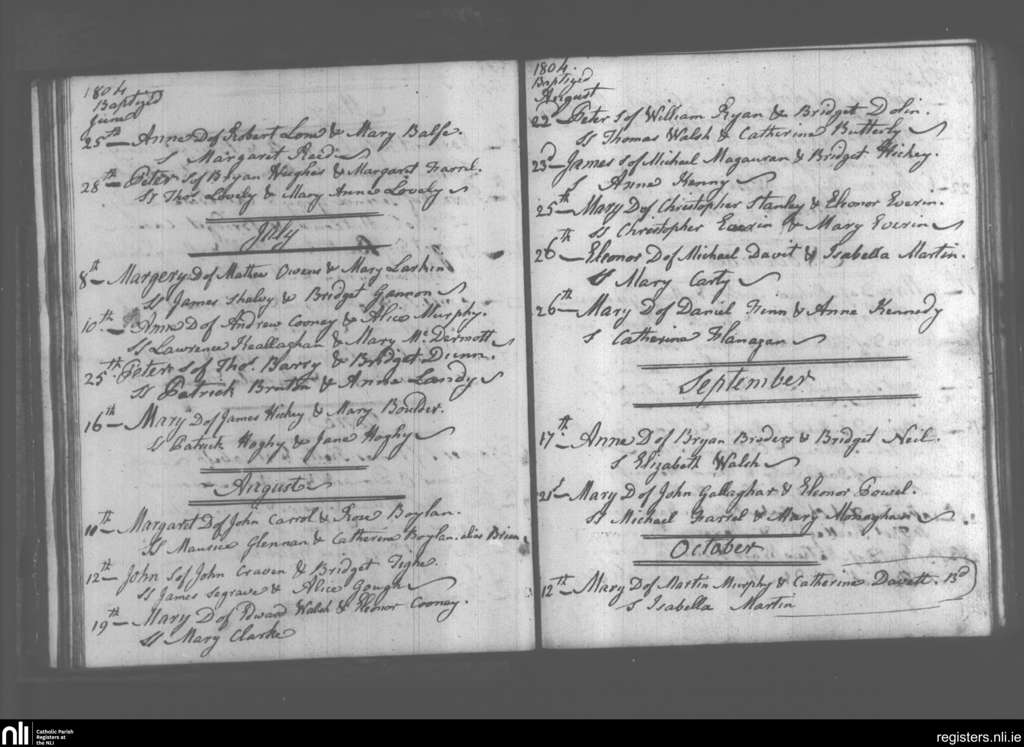 1804
Baptized
June
25th Anne D of Robert Lone & Mary Balfe.
S Margaret Reed
28th Peter S of Bryan Hughes & Margaret Farrel.
SS Thos. Lovely & Mary Anne Lovely
July
8th Margery D of Mathew Owens & Mary Larkin
SS James Shalvy & Bridget Gannon
10th Anne D of Andrew Cooney & Alice Murphy.
SS Lawrence Heallaghan & Mary McDermott
25th Peter S of Thos. Barry & Bridget Dunn.
SS Patrick & Anne Landy
16th Mary D of James Hickey & Mary Boulder.
SS Patrick Hoghy & Jane Hoghy
August
10th Margaret D of John Carrol & Rose Boylan.
SS Maurice Glennan & Catherine Boylan. alias Brien
12th John S of John Craven & Bridget Tighe.
SS James Segrave & Alice Gough
19th Mary D of Edward Walsh & Eleonor Cooney.
SS Mary Clarke
1804.
Baptized
August
22d Peter S of William Ryan & Bridget Dolin.
SS Thomas Walsh & Catherine Butterly
23d James S of Michael Magauran & Bridget Hickey.
S Anne Kenny
25th Mary D of Christopher Stanley & Eleonor Everin.
SS Christopher Everin & Mary Everin
26th Eleonor D of Michael Davit & Isabella Martin.
SS Mary Carty
26th Mary D of Daniel Finn & Anne Kennedy
S Catherine Flanagan
September
17th Anne D of Bryan Broders & Bridget Neil.
S Elizabeth Walsh
21st Mary D of John Gallaghar & Eleonor Powel.
SS Michael Farrel & Mary Monaghan
October
12th Mary D of Martin Murphy & Catherine Davett. Bd
S Isabella Martin
nli
Catholic Parish
Registers at
the NLI
registers.nli.ie